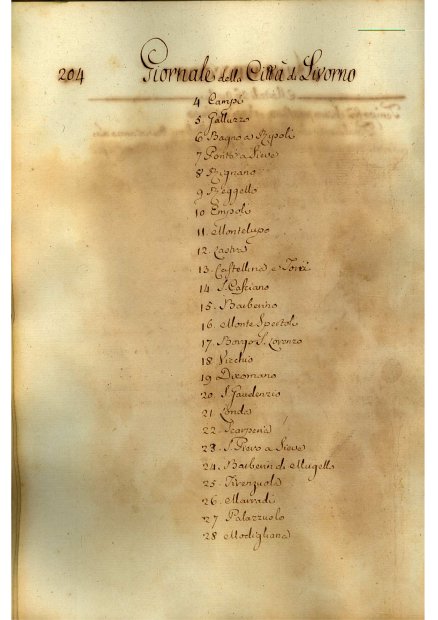 204 Giornale della Città di Livorno
4 Campi
5 Galluzzo
6 Bagno a Ripoli
7 Ponte a Sieve
8 Rignano
9 Reggello
10 Empoli
11 Montelupo
12. Castra
13 Castellina e
14 S. Casciano
15. Barberino
16. Monte Spertoli
17. Borgo S. Lorenzo
18 Vicchio
19 Dicomano
20. S. Gaudenzio
21 Londa
22. Scarperia
23. S. Piero a Sieve
24. Barberin di Mugello
25. Firenzuola
26. Marradi
27 Palazzuolo
28 Modigliana